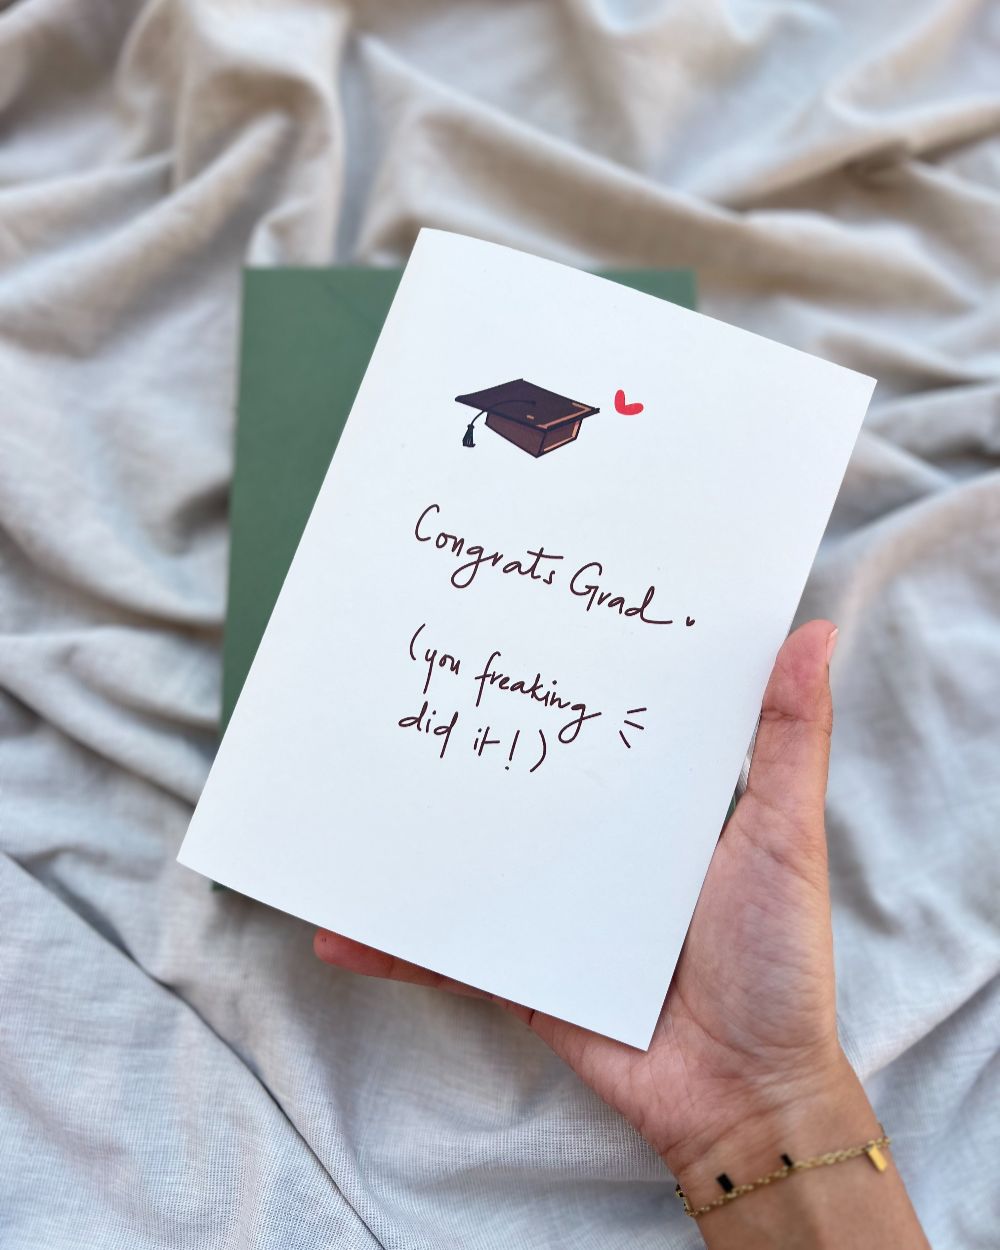 Congrats Grad.
(you freaking
did it!)